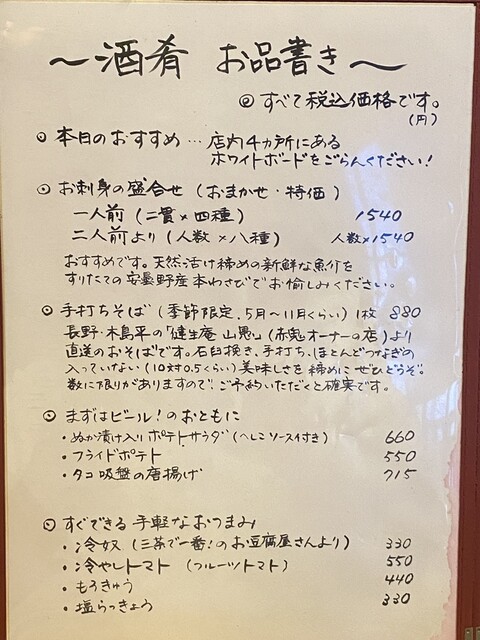 〜酒肴 お品書き〜
◎すべて税込価格です。
(円)
◎本日のおすすめ…店内4ヵ所にある
ホワイトボードをごらんください!
◎お刺身の盛合せ(おまかせ・特価)
一人前(二貫×四種) 1540
二人前より(人数×八種) 人数×1540
おすすめです。天然、活け締めの新鮮な魚介を
すりたての安曇野産本わさびでお愉しみください。
◎手打ちそば(季節限定、5月〜11月くらい)1枚 880
長野・木島平の「健生庵 山愚」(赤鬼オーナーの店)より
直送のおそばです。石臼挽き、手打ち、ほとんどつなぎの
入っていない(10対0.5くらい)美味しさを締めにぜひどうぞ。
数に限りがありますので、ご予約いただくと確実です。
◎まずはビール!のおともに
・ぬか漬け入りポテトサラダ(へしこソース付き) 660
・フライドポテト 550
・タコ吸盤の唐揚げ 715
◎すぐできる手軽なおつまみ
・冷奴(三茶で一番!のお豆腐屋さんより) 330
・冷やしトマト(フルーツトマト) 550
・もろきゅう 440
・塩らっきょう 330